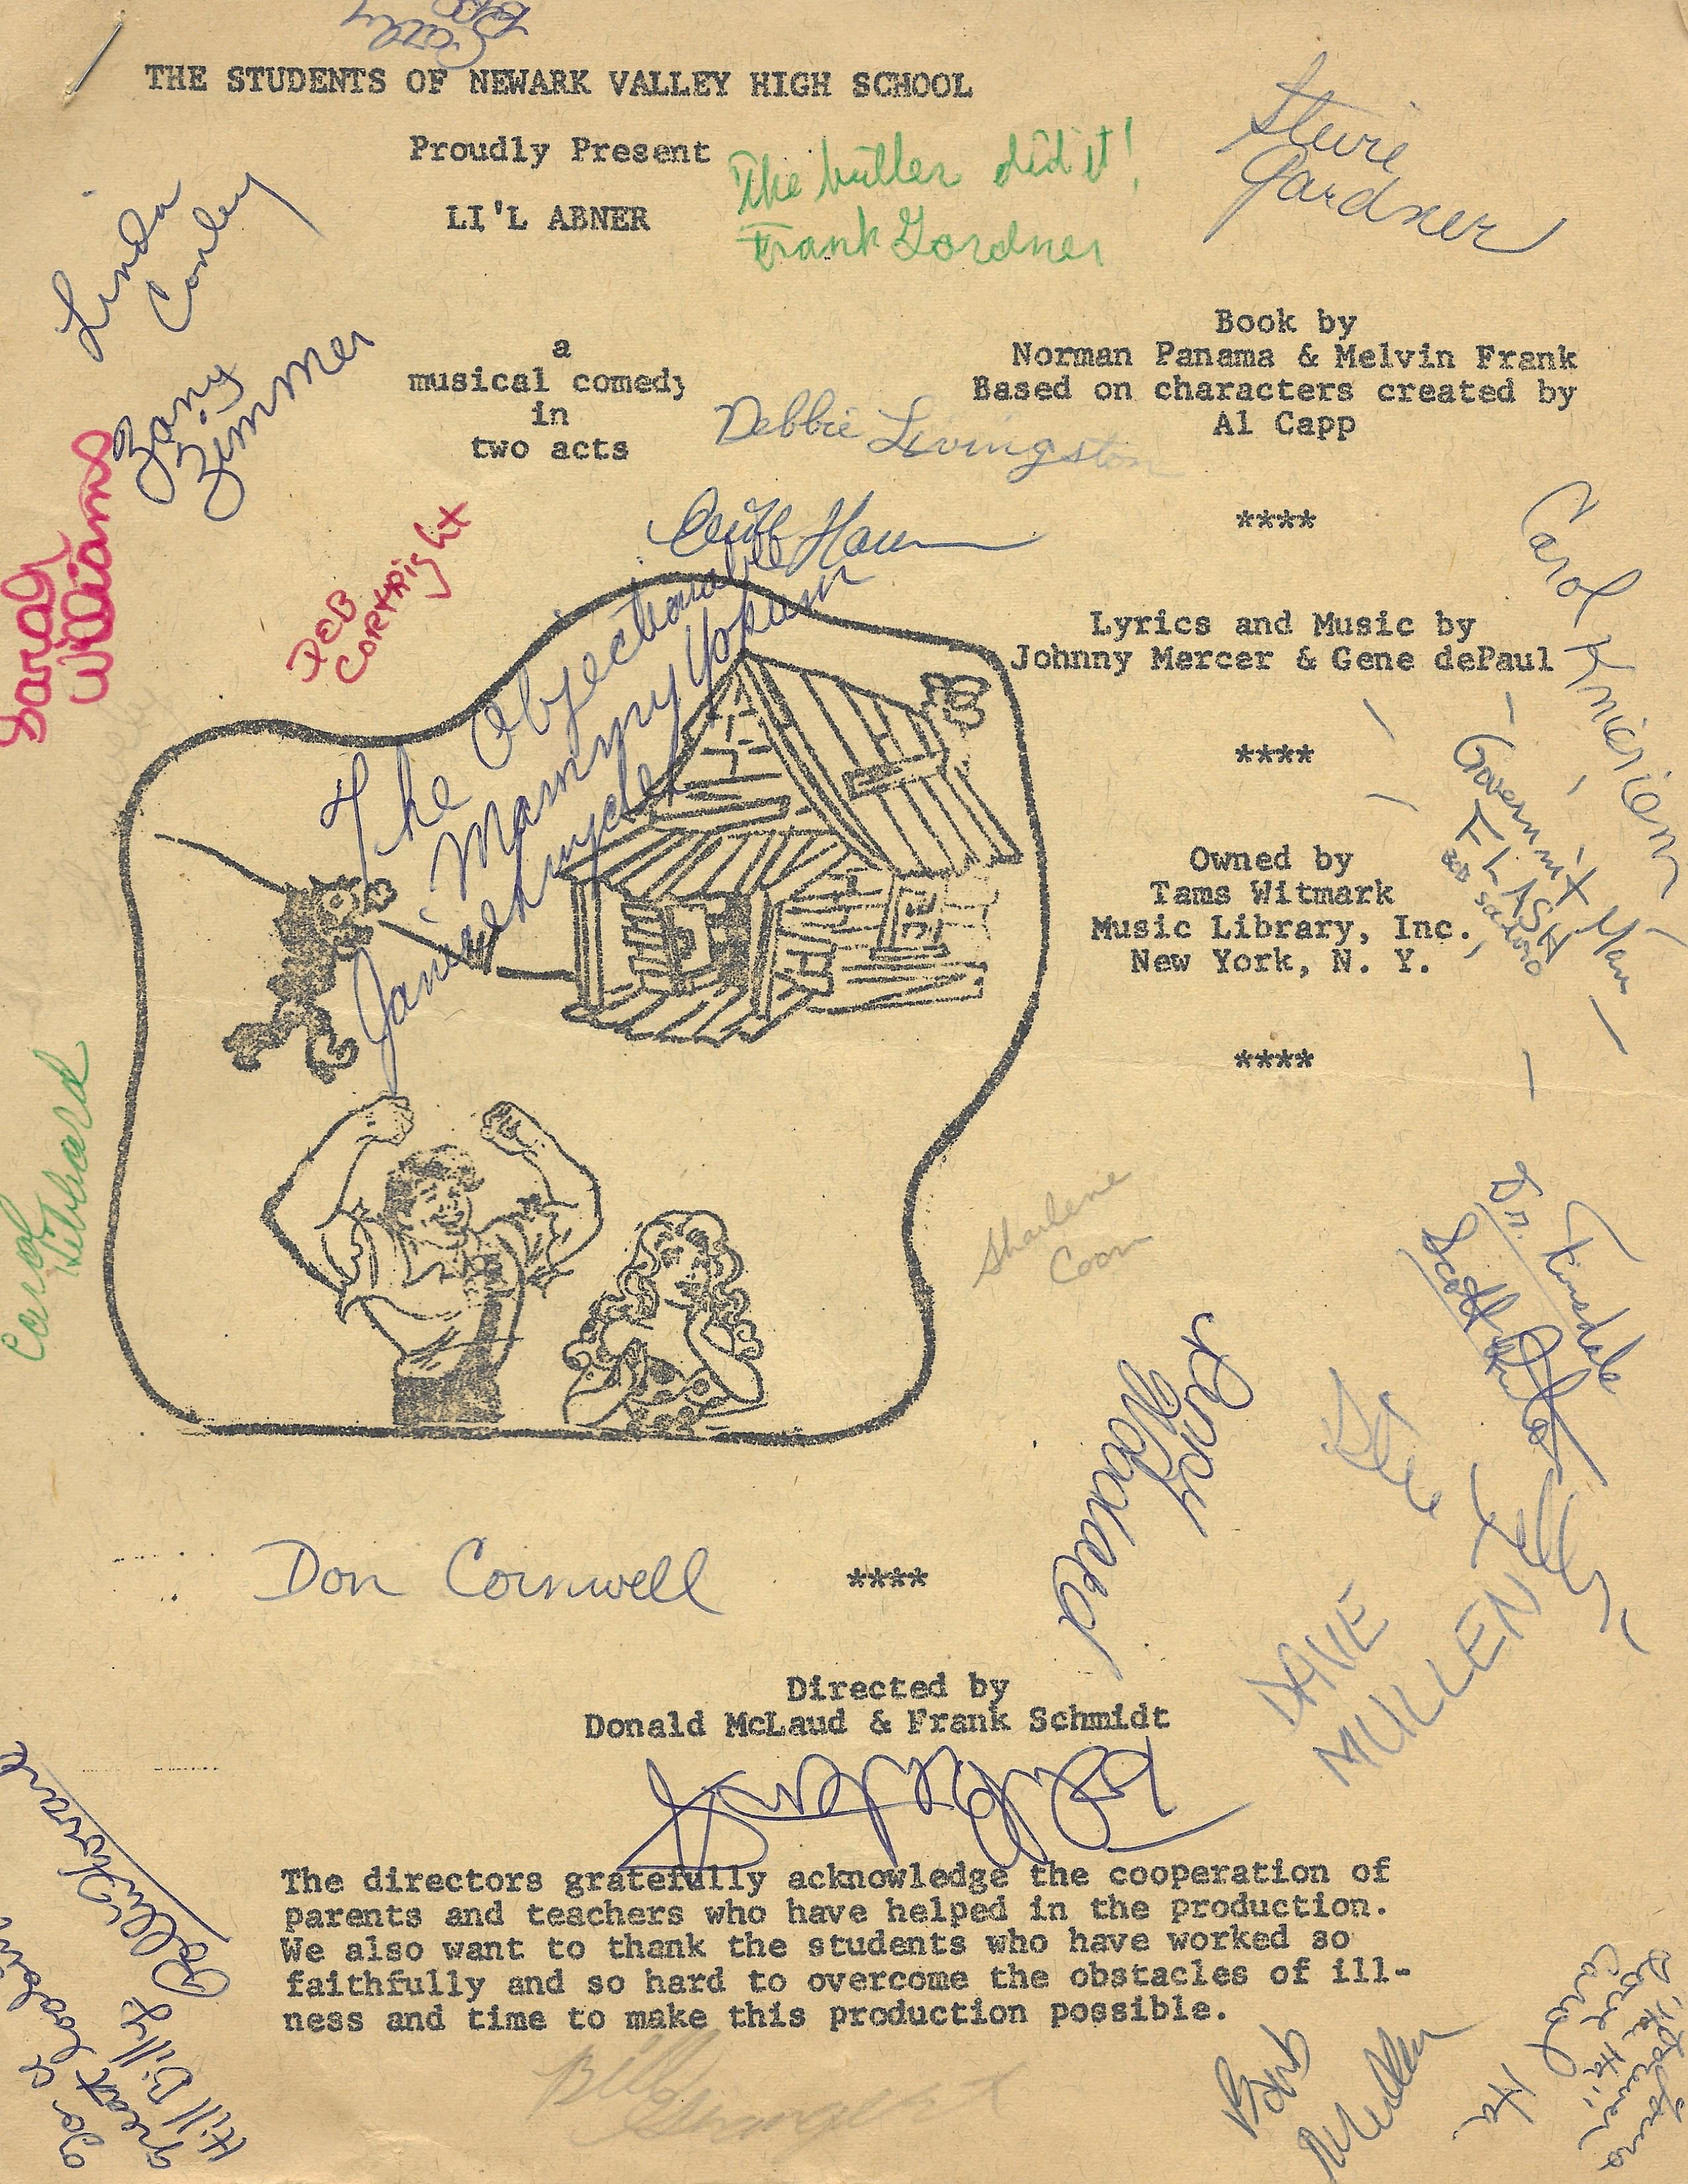 THE STUDENTS OF NEWARK VALLEY HIGH SCHOOL
Proudly Present
LI'L ABNER
The butler did it!
Frank Gardner
Stevie
Gardner
Linda
Conley
Zimmer
a
musical comedy
in
two acts
Book by
Norman Panama & Melvin Frank
Based on characters created by
Al Capp
Debbie Livingston
****
Sarah
Williams
DEB
CORTRIGHT
The Objectionable
Mammy Yokum
Lyrics and Music by
Johnny Mercer & Gene dePaul
****
Carol Knieriem
Government Man
FLASH
Owned by
Tams Witmark
Music Library, Inc.,
New York, N. Y.
****
Carol
Hibbard
Sharlene
Coon
Dr. Finsdale
Scott
Woodard
Don Cornwell
****
DAVE
MULLEN
Directed by
Donald McLaud & Frank Schmidt
The directors gratefully acknowledge the cooperation of
parents and teachers who have helped in the production.
We also want to thank the students who have worked so
faithfully and so hard to overcome the obstacles of ill-
ness and time to make this production possible.
Bill
Hill Billy
Mullen
Carol
Ha